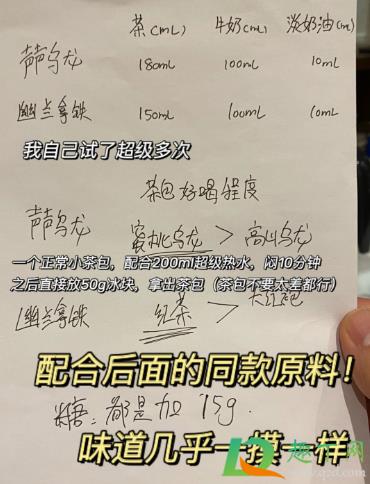 茶(mL) 牛奶(mL) 淡奶油(mL)
声声乌龙 180mL 100mL 10mL
幽兰拿铁 150mL 100mL 10mL
我自己试了超级多次
茶包好喝程度
声声乌龙 蜜桃乌龙 > 高山乌龙
一个正常小茶包，配合200ml超级热水，闷10分钟
之后直接放50g冰块，拿出茶包（茶包不要太差都行）
幽兰拿铁 红茶 > 大红袍
配合后面的同款原料！
糖：都是加 15g.
味道几乎一摸一样